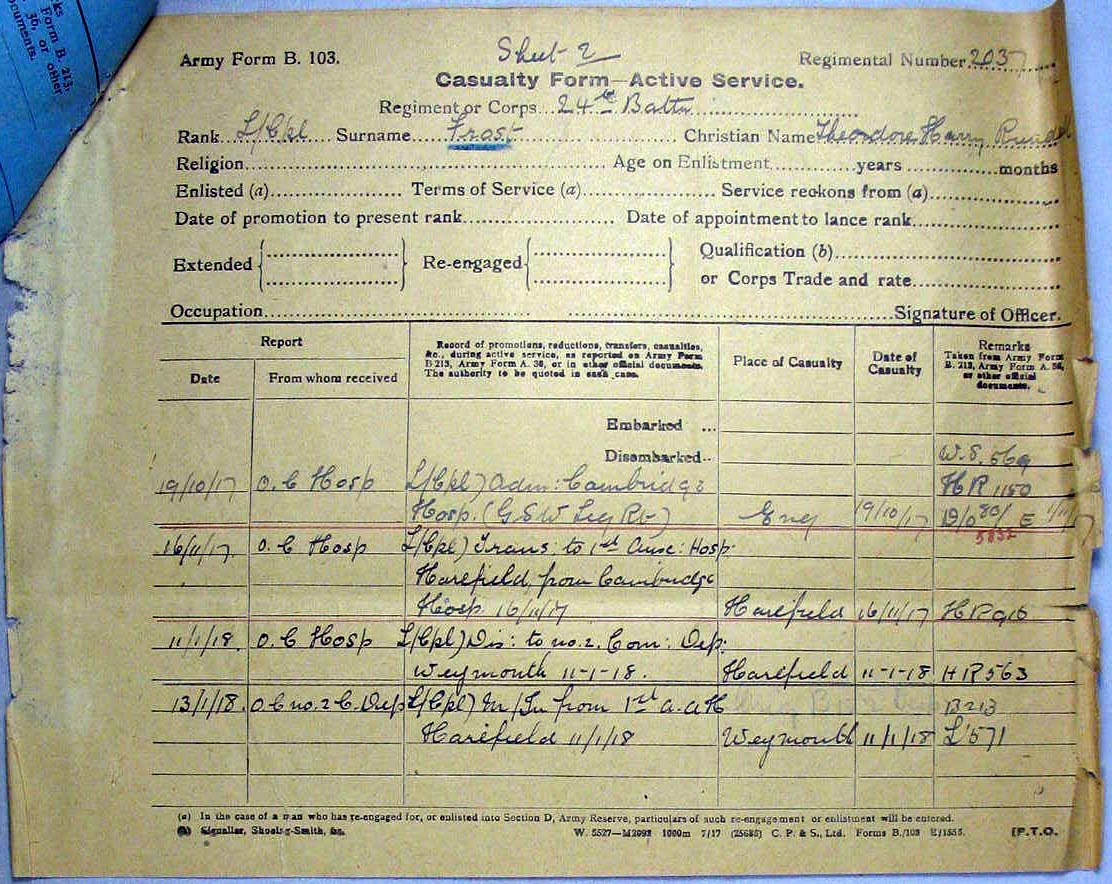 ks
36, or
Form B. 213,
or other
ocuments.
Army Form B. 103.
Sheet 2
Regimental Number 2037
Casualty Form—Active Service.
Regiment or Corps 24th Battn
Rank L/Cpl Surname Frost Christian Name Theodore Harry
Religion Age on Enlistment years months
Enlisted (a) Terms of Service (a) Service reckons from (a)
Date of promotion to present rank Date of appointment to lance rank
Extended Re-engaged Qualification (b)
or Corps Trade and rate
Occupation Signature of Officer.
Report
Date From whom received
Record of promotions, reductions, transfers, casualties, &c., during active service, as reported on Army Form B 213, Army Form A. 36, or in other official documents. The authority to be quoted in each case.
Place of Casualty
Date of Casualty
Remarks
Taken from Army Form B. 213, Army Form A. 36, or other official documents.
Embarked ...
Disembarked.. W.S. 569
19/10/17 O.C Hosp L/Cpl) Adm: Cambridge HR 1150
Hosp. (GSW Leg Rt) Eng 19/10/17
5832
16/11/17 O.C Hosp L/Cpl) Trans: to 1st Aux: Hosp
Harefield from Cambridge
Hosp 16/11/17 Harefield 16/11/17
11/1/18. O.C Hosp L/Cpl) Dis: to no.2. Com: Dep:
Weymouth 11-1-18. Harefield 11-1-18 HR563
13/1/18. O.C no.2 C.Dep L/Cpl) M/In from 1st a.a H B213
Harefield 11/1/18 Weymouth 11/1/18 L'571
(a) In the case of a man who has re-engaged for, or enlisted into Section D, Army Reserve, particulars of such re-engagement or enlistment will be entered.
(b) Signaller, Shoeing-Smith, &c. W. 5527—M2093 1000m 7/17 (25685) C. P. & S., Ltd. Forms B./103 E/1555. [P.T.O.